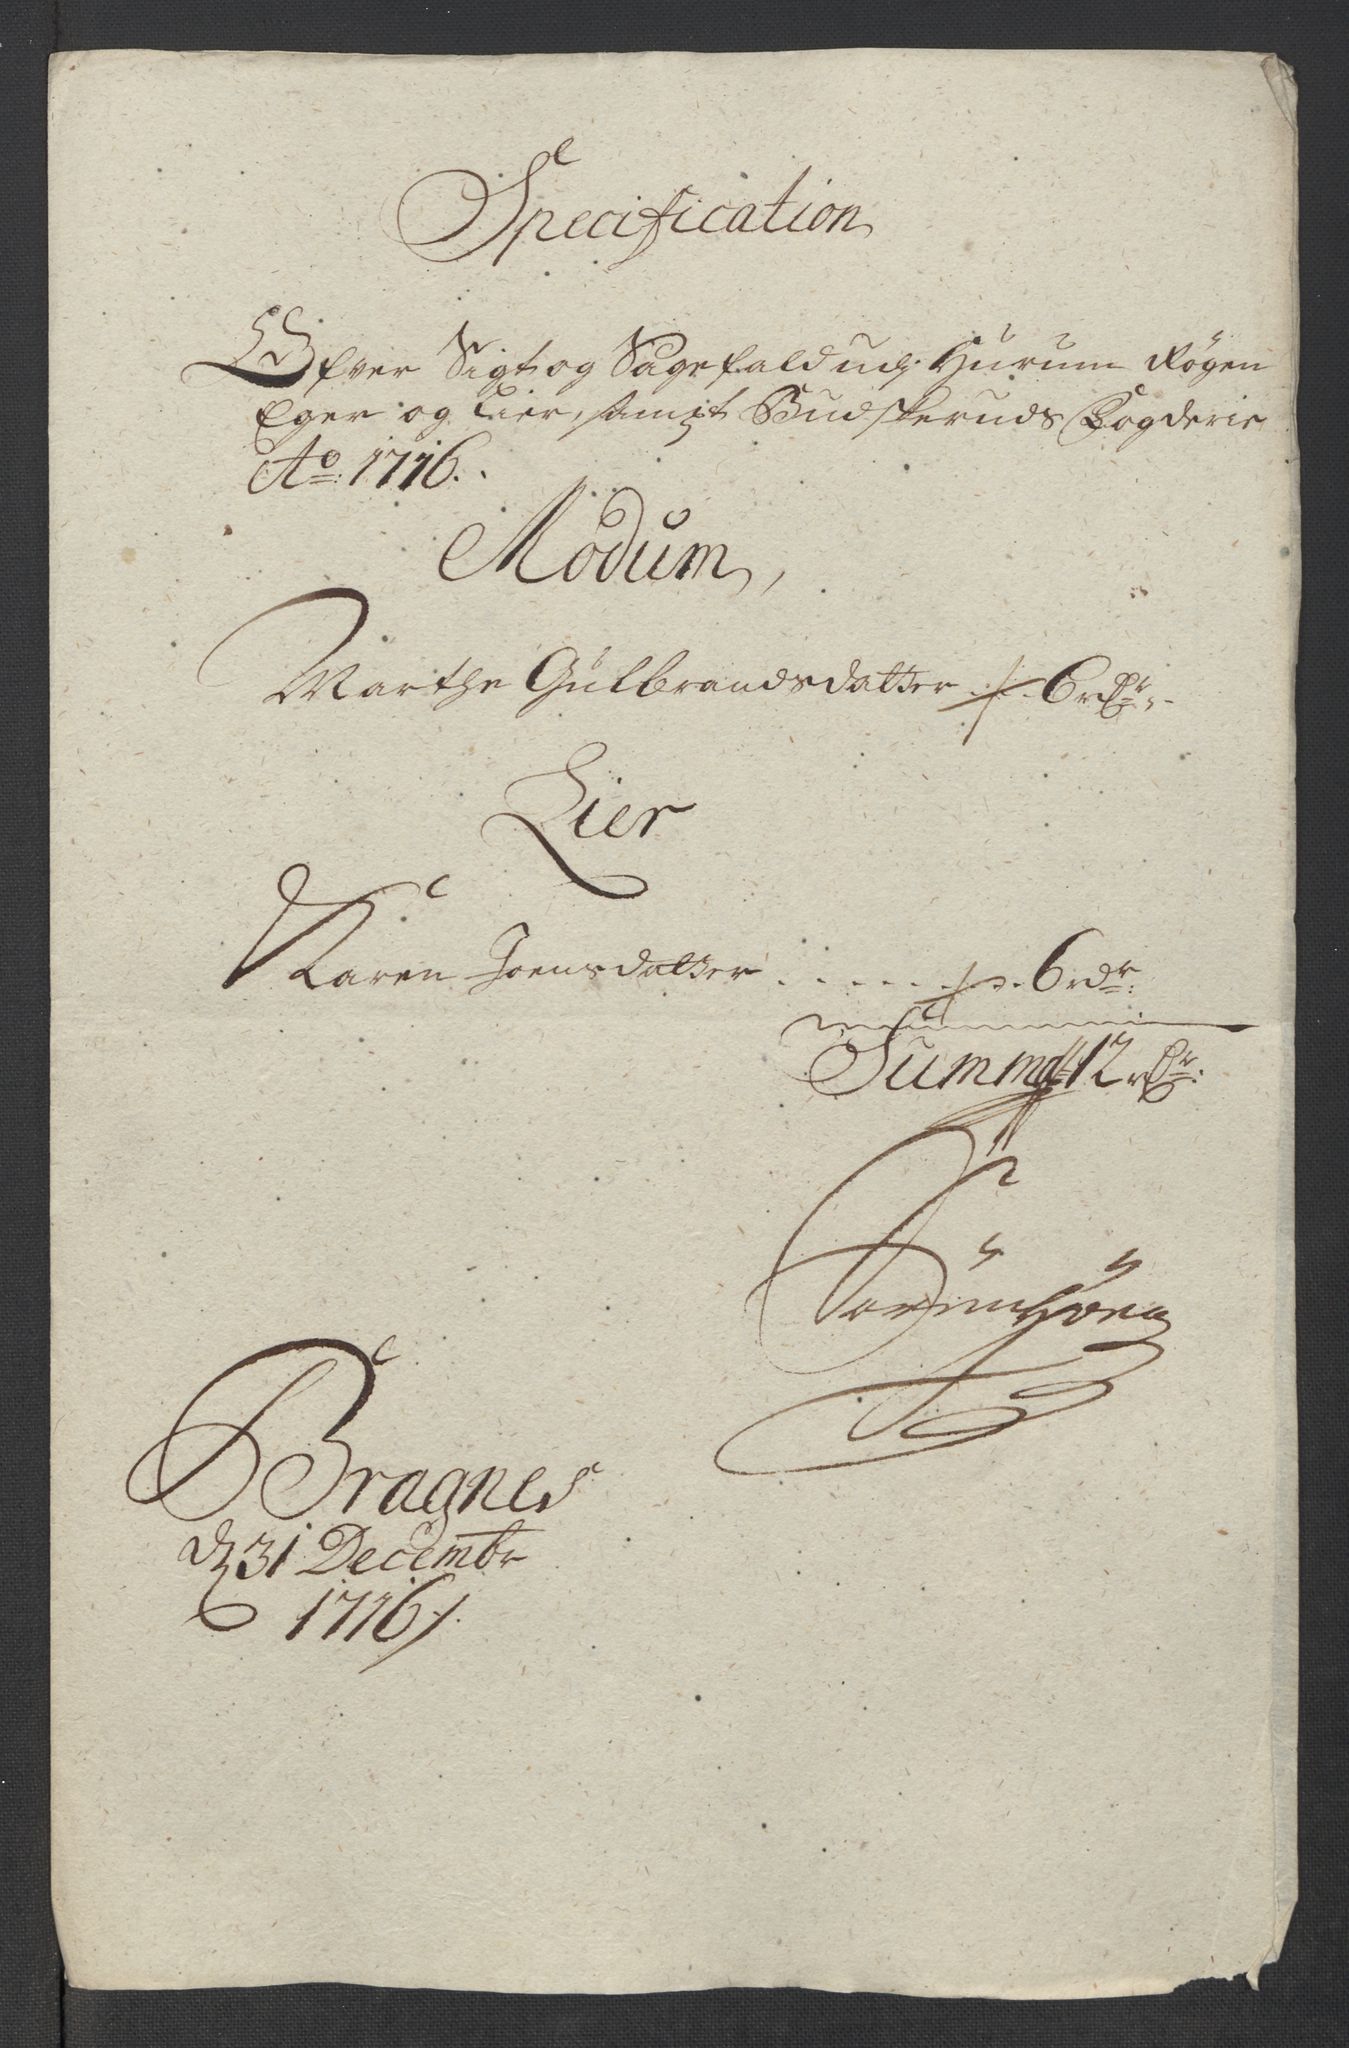 Specification
Ofver Sigt og Sagefald udj Hurum Røgen
Eger og Lier, sampt Budskeruds Fogderie
Ao: 1716.
Modum,
Marthe Gulbrandsdatter 6 rdr.
Lier
Karen Joensdatter . . . . . 6 rdr.
Summa 12 rdr.
Bragnes
d 31 Decembr
1716